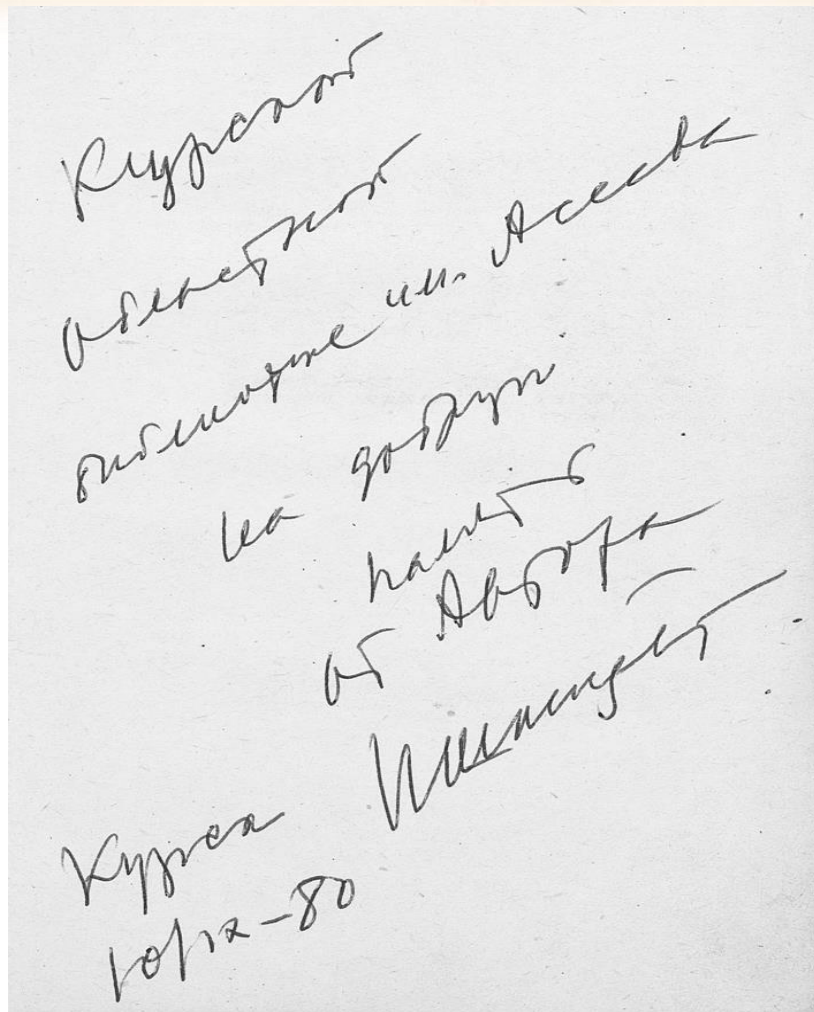 Курской
областной
библиотеке им. Асеева
на добрую
память
от Автора
Курск
10/IX-80